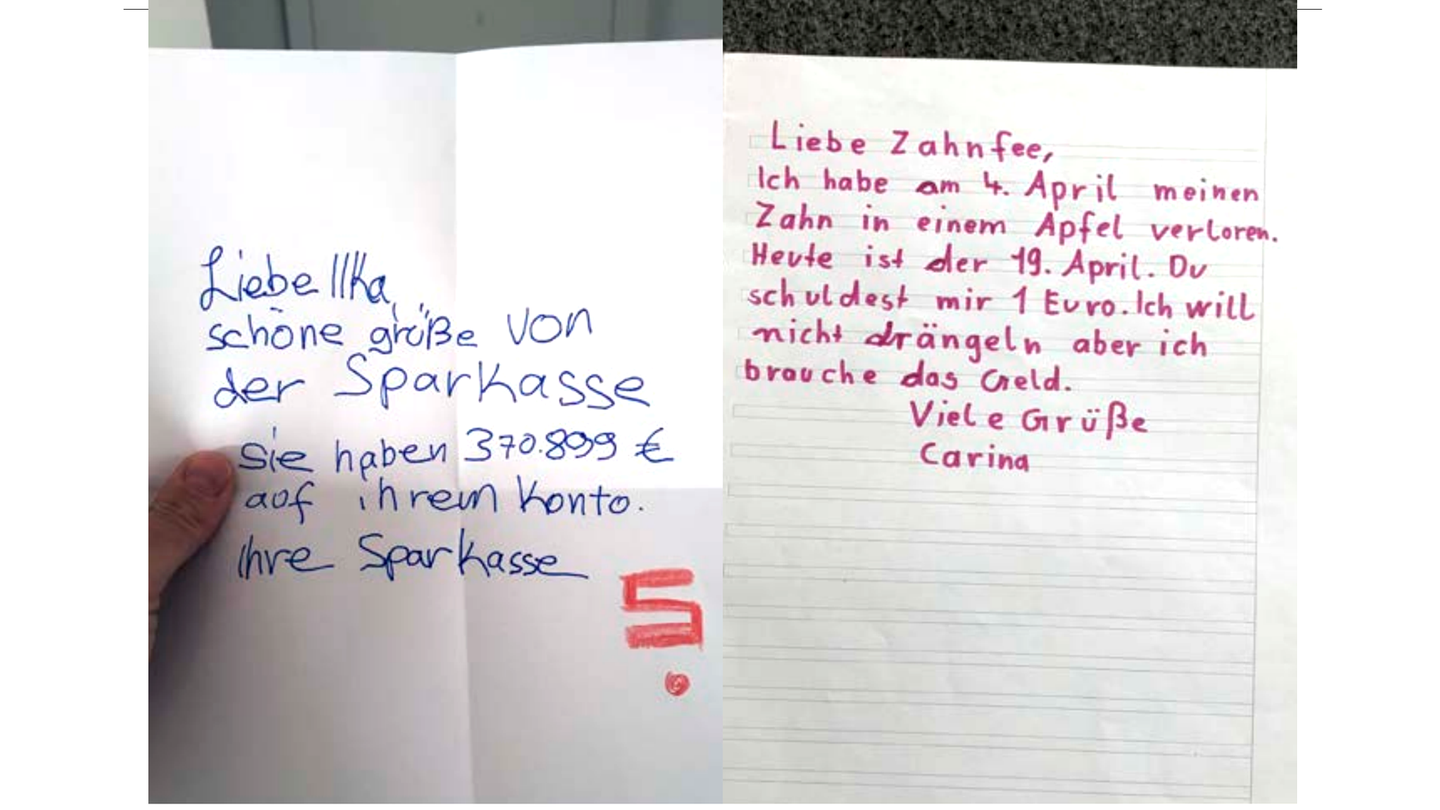 Liebe Ilka,
schöne grüße von
der Sparkasse
sie haben 370.899 €
auf ihrem Konto.
Ihre Sparkasse
Liebe Zahnfee,
Ich habe am 4. April meinen
Zahn in einem Apfel verloren.
Heute ist der 19. April. Du
schuldest mir 1 Euro. Ich will
nicht drängeln aber ich
brauche das Geld.
Viele Grüße
Carina